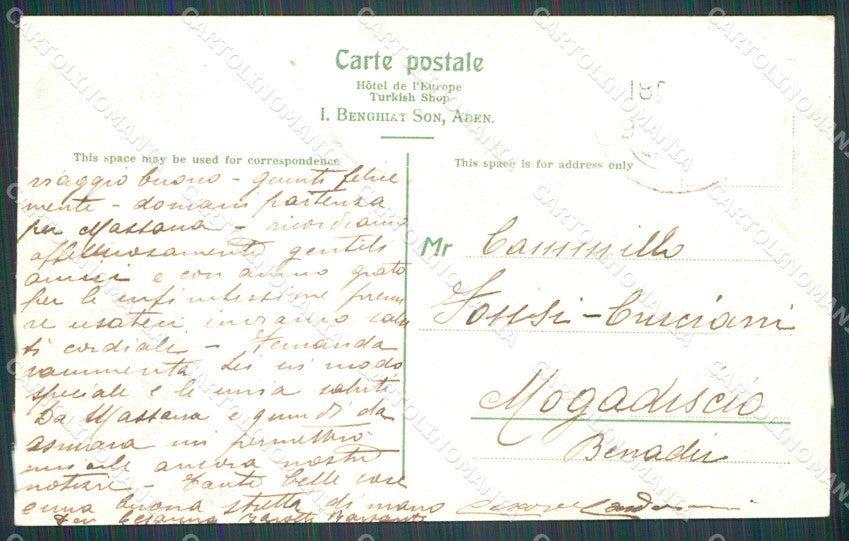 Carte postale
Hôtel de l'Europe
Turkish Shop
I. BENGHIAT SON, ADEN.
This space may be used for correspondence
This space is for address only
viaggio buono - giunti felice
mente - domani partenza
per Massaua - ricordiamo
affettuosamente gentili
amici e con animo grato
per le infinitissime premu
re usateci inviamo salu
ti cordiali - Fernanda
rammenta Lei in modo
speciale e le invia saluti
Da Massaua e quindi da
asmara mi permetterò
ancora nostre
notizie - Tante belle cose
e una buona stretta di mano
Mr Cammillo
Fossi-Cruciani
Mogadiscio
Benadir
CARTOLINOMANIA